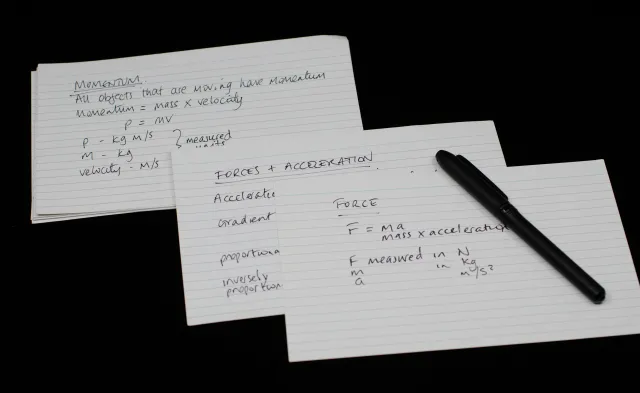 MOMENTUM
All objects that are moving have momentum
Momentum = mass x velocity
P = MV
P - kg m/s } measured
m - kg units
velocity - m/s
FORCES + ACCELERATION
Acceleratio
Gradient
proportiona
inversely
proportion
FORCE
F = ma
mass x acceleration
F measured in N
m in kg
a m/s²